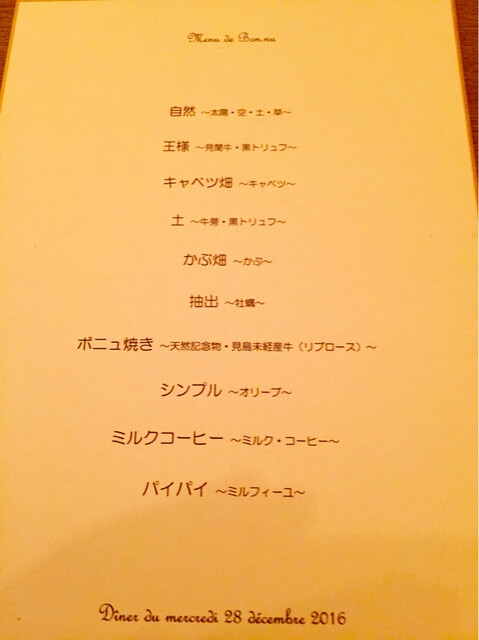 Menu de Bon.nu
自然 ～太陽・空・土・草～
王様 ～見蘭牛・黒トリュフ～
キャベツ畑 ～キャベツ～
土 ～牛蒡・黒トリュフ～
かぶ畑 ～かぶ～
抽出 ～牡蠣～
ボニュ焼き ～天然記念物・見島未経産牛（リブロース）～
シンプル ～オリーブ～
ミルクコーヒー ～ミルク・コーヒー～
パイパイ ～ミルフィーユ～
Dîner du mercredi 28 décembre 2016